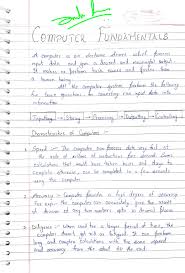 COMPUTER FUNDAMENTALS
A computer is an electronic device which process
input data, and give a desired and meaningful output.
It makes us perform tasks easier and faster than
a human being.
All the computer system perform the following
five basic operations for converting raw input data into
information
Inputting → Storing → Processing → Outputting → Controlling
Characteristics of Computers :-
1 Speed :- The computer can process data very fast at
the rate of millions of instructions per second. Some
calculations that would have taken hours and days to
complete otherwise, can be completed in a few seconds
using the computer.
2 Accuracy :- Computer provides a high degree of accuracy.
For example, the computer can accurately give the result
of division of any two numbers upto 10 decimal places.
3 Diligence :- When used for a longer period of time, the
computer does not get tired or fatigued. It can perform
long and complex calculations with the same speed
and accuracy from the start to the end.